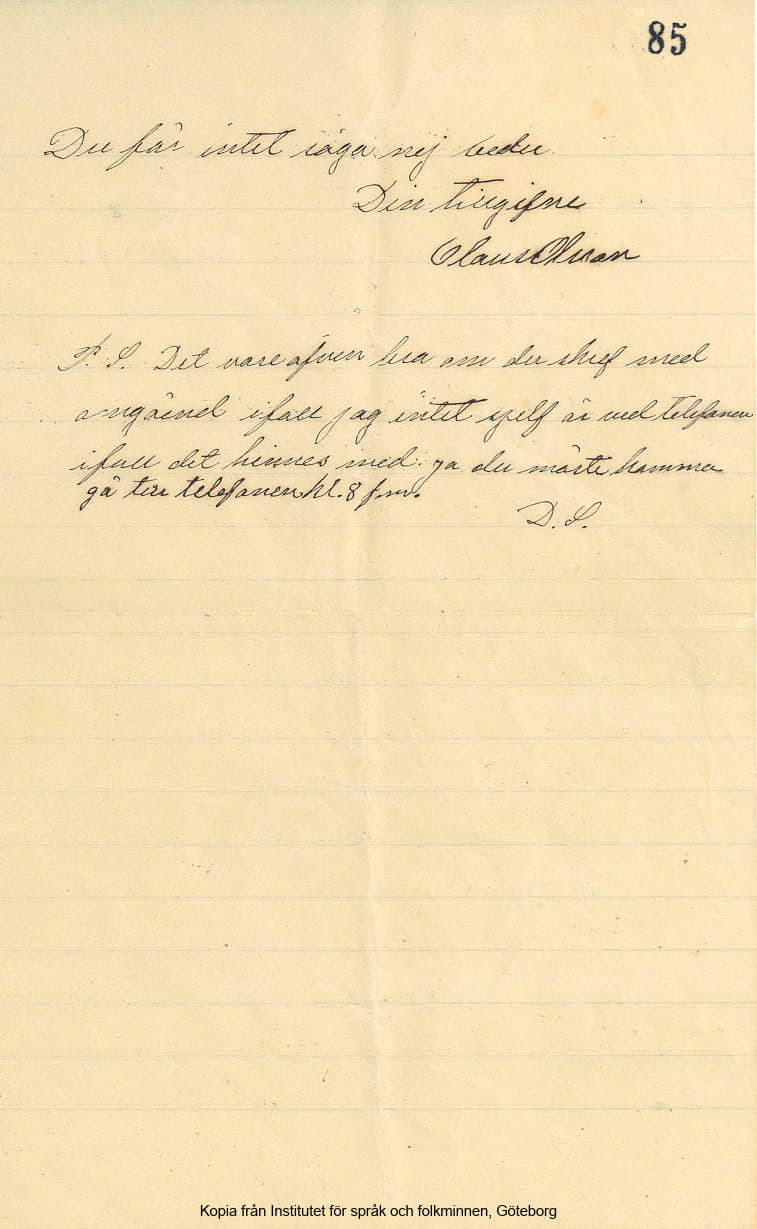 85
Du får intet säga nej beder
Din tillgifne
Claus Olsson
P. S. Det vore äfven bra om du skref med
angående ifall jag intet sjelf är ved telefonen
ifall det hinnes med. ja du måste komma
gå till telefonen kl. 8 f.m.
D. S.
Kopia från Institutet för språk och folkminnen, Göteborg